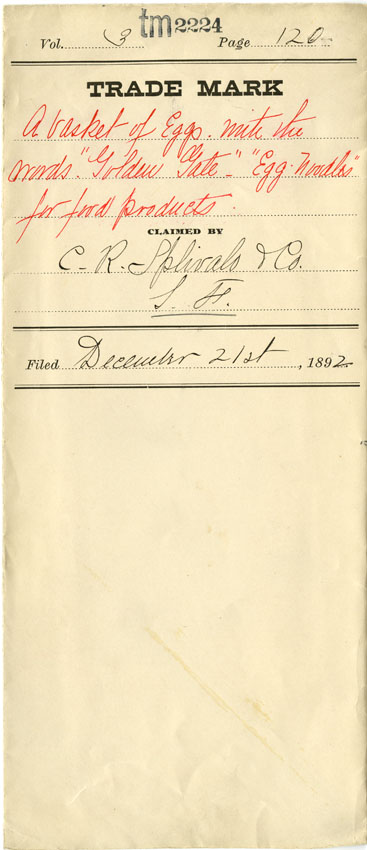 tm 2224
Vol. 3 Page 120
TRADE MARK
A basket of Eggs. with the
words "Golden Gate" - "Egg-Noodles"
for food products.
CLAIMED BY
C. R. Splivalo & Co.
S. F.
Filed December 21st, 1892